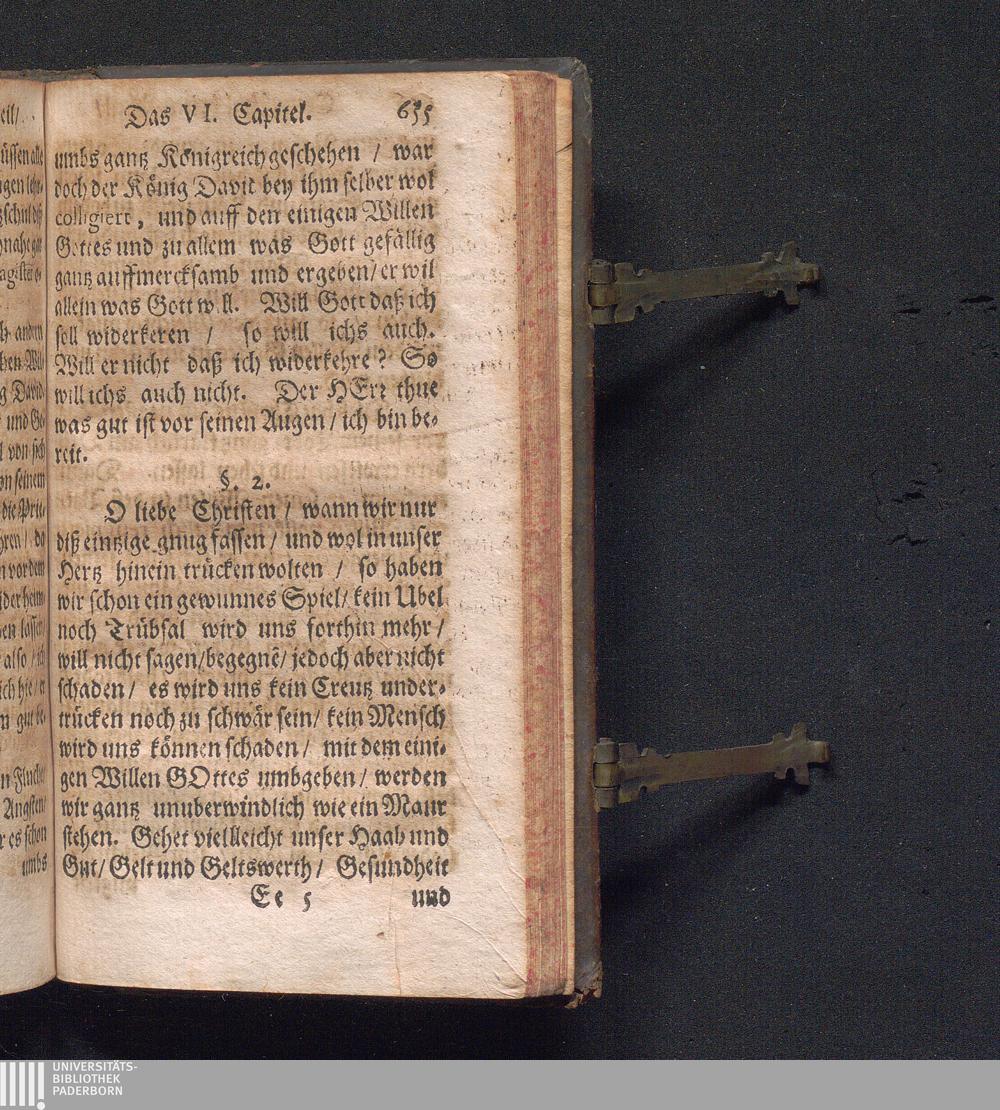 Das VI. Capitel. 655
umbs gantz Königreich geschehen / war
doch der König David bey ihm selber wol
colligiert, und auff den einigen Willen
Gottes und zu allem was Gott gefällig
gantz auffmercksamb und ergeben / er wil
allein was Gott will. Will Gott daß ich
soll widerkeren / so will ichs auch.
Will er nicht daß ich widerkehre? So
will ichs auch nicht. Der HErr thue
was gut ist vor seinen Augen / ich bin be-
reit.
§. 2.
O liebe Christen / wann wir nur
diß eintzige gnug fassen / und wol in unser
Hertz hinein trücken wolten / so haben
wir schon ein gewunnes Spiel / kein Ubel
noch Trübsal wird uns forthin mehr /
will nicht sagen / begegnē / jedoch aber nicht
schaden / es wird uns kein Creutz under-
trücken noch zu schwär sein / kein Mensch
wird uns können schaden / mit dem eini-
gen Willen GOttes umbgeben / werden
wir gantz unuberwindlich wie ein Maur
stehen. Gehet vielleicht unser Haab und
Gut / Gelt und Geltswerth / Gesundheit
Ee 5 und
UNIVERSITÄTS-
BIBLIOTHEK
PADERBORN